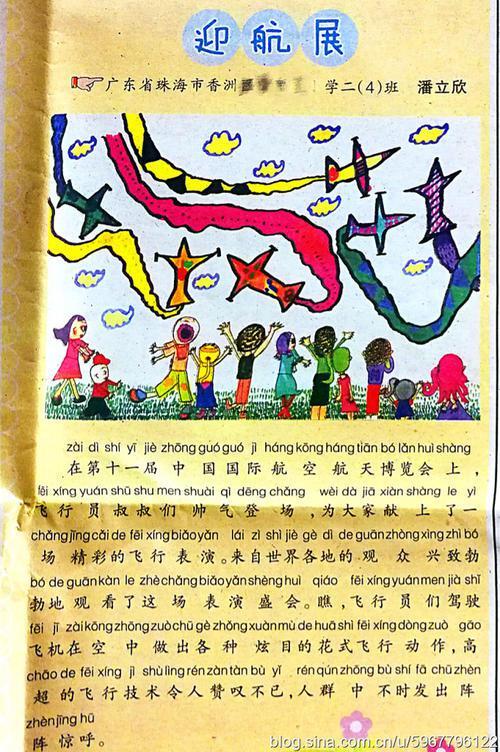 迎航展
广东省珠海市香洲 学二(4)班 潘立欣
zài dì shí yī jiè zhōng guó guó jì háng kōng háng tiān bó lǎn huì shàng
在第十一届中国国际航空航天博览会上,
fēi xíng yuán shū shu men shuài qì dēng chǎng wèi dà jiā xiàn shàng le yì
飞行员叔叔们帅气登场,为大家献上了一
chǎng jīng cǎi de fēi xíng biǎo yǎn lái zì shì jiè gè dì de guān zhòng xìng zhì bó
场精彩的飞行表演。来自世界各地的观众兴致勃
bó de guān kàn le zhè chǎng biǎo yǎn shèng huì qiáo fēi xíng yuán men jià shǐ
勃地观看了这场表演盛会。瞧,飞行员们驾驶
fēi jī zài kōng zhōng zuò chū gè zhǒng xuàn mù de huā shì fēi xíng dòng zuò gāo
飞机在空中做出各种炫目的花式飞行动作,高
chāo de fēi xíng jì shù lìng rén zàn tàn bù yǐ rén qún zhōng bù shí fā chū zhèn
超的飞行技术令人赞叹不已,人群中不时发出阵
zhèn jīng hū
阵惊呼。
blog.sina.com.cn/u/5967796122